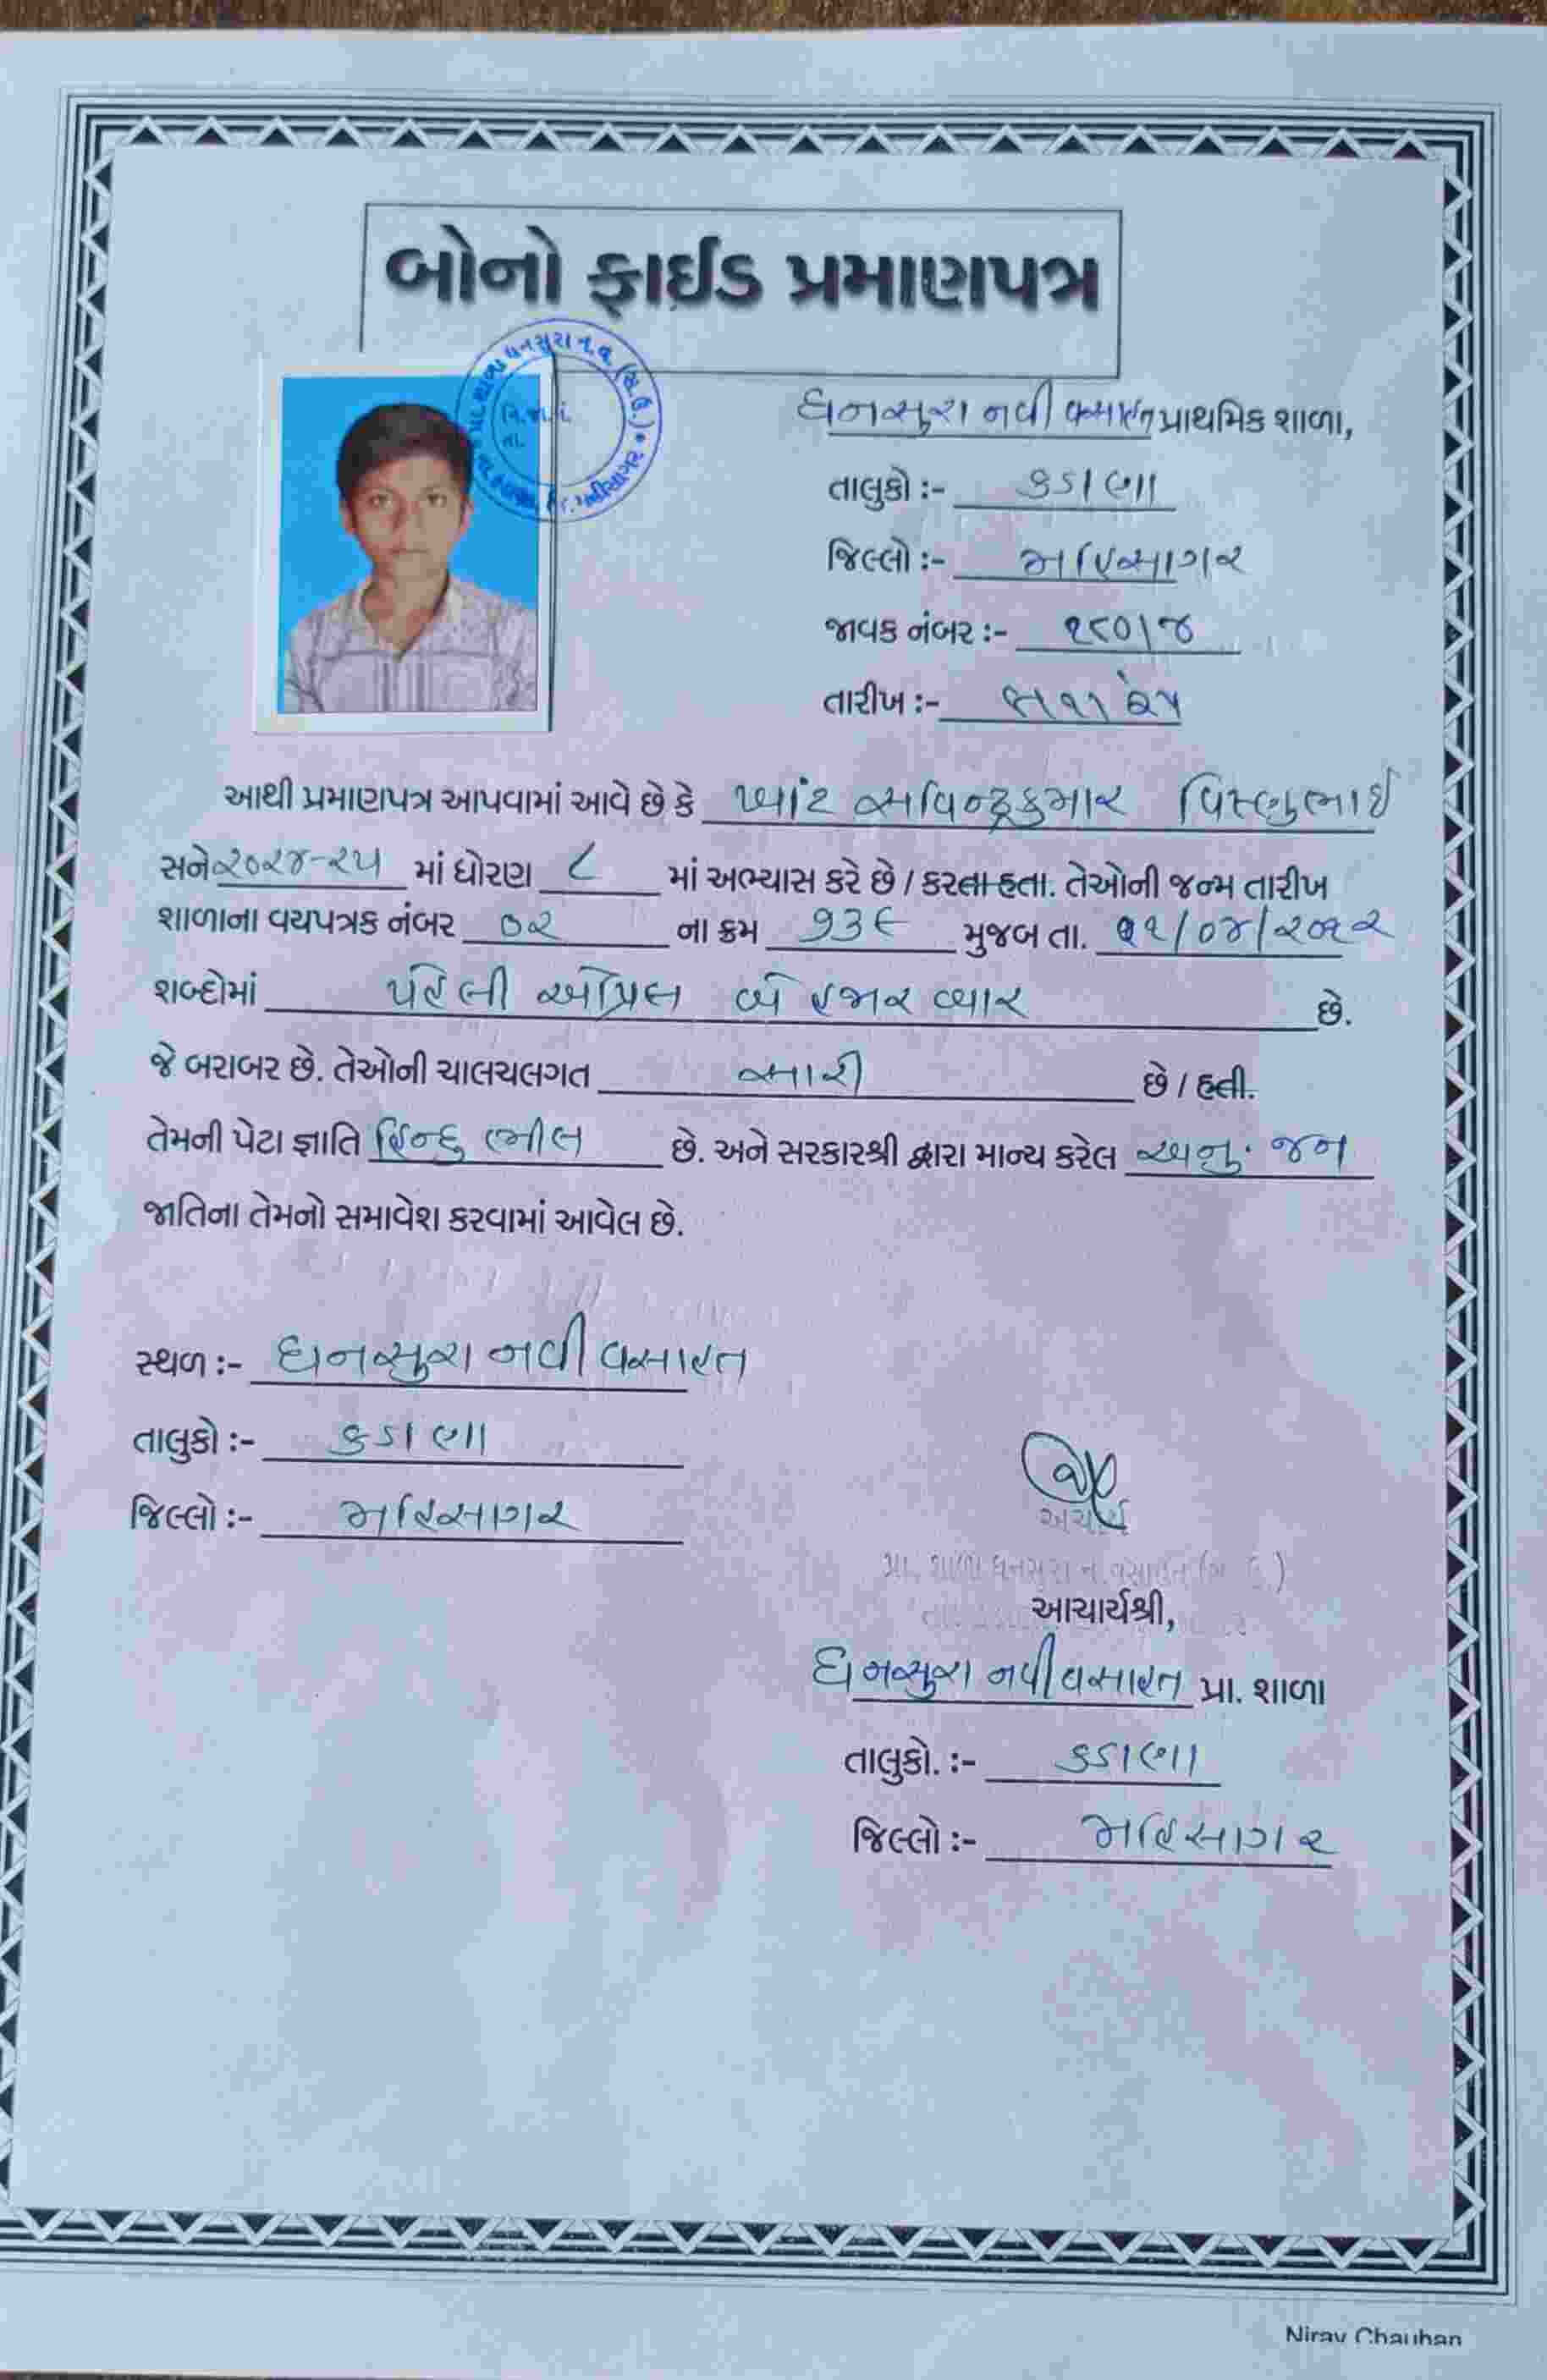 બોનો ફાઈડ પ્રમાણપત્ર
ધનસુરા નવી વસાહત પ્રાથમિક શાળા,
તાલુકો :- કડાણા
જિલ્લો :- મહિસાગર
જાવક નંબર :- ૧૮૦/૪
તારીખ :-
આથી પ્રમાણપત્ર આપવામાં આવે છે કે ખાંટ વિષ્ણુભાઈ
સને ૨૦૨૪-૨૫ માં ધોરણ ૮ માં અભ્યાસ કરે છે / કરતા હતા. તેઓની જન્મ તારીખ
શાળાના વયપત્રક નંબર ૦૨ ના ક્રમ ૧૩૯ મુજબ તા. /૦૪/૨૦૧૨
શબ્દોમાં પહેલી એપ્રિલ બે હજાર બાર છે.
જે બરાબર છે. તેઓની ચાલચલગત સારી છે / હતી.
તેમની પેટા જ્ઞાતિ હિન્દુ ભીલ છે. અને સરકારશ્રી દ્વારા માન્ય કરેલ અનુ. જન
જાતિના તેમનો સમાવેશ કરવામાં આવેલ છે.
સ્થળ :- ધનસુરા નવી વસાહત
તાલુકો :- કડાણા
જિલ્લો :- મહિસાગર
પ્રા. શાળા ધનસુરા ન.વસાહત
આચાર્યશ્રી,
ધનસુરા નવી વસાહત પ્રા. શાળા
તાલુકો. :- કડાણા
જિલ્લો :- મહિસાગર
Nirav Chauhan